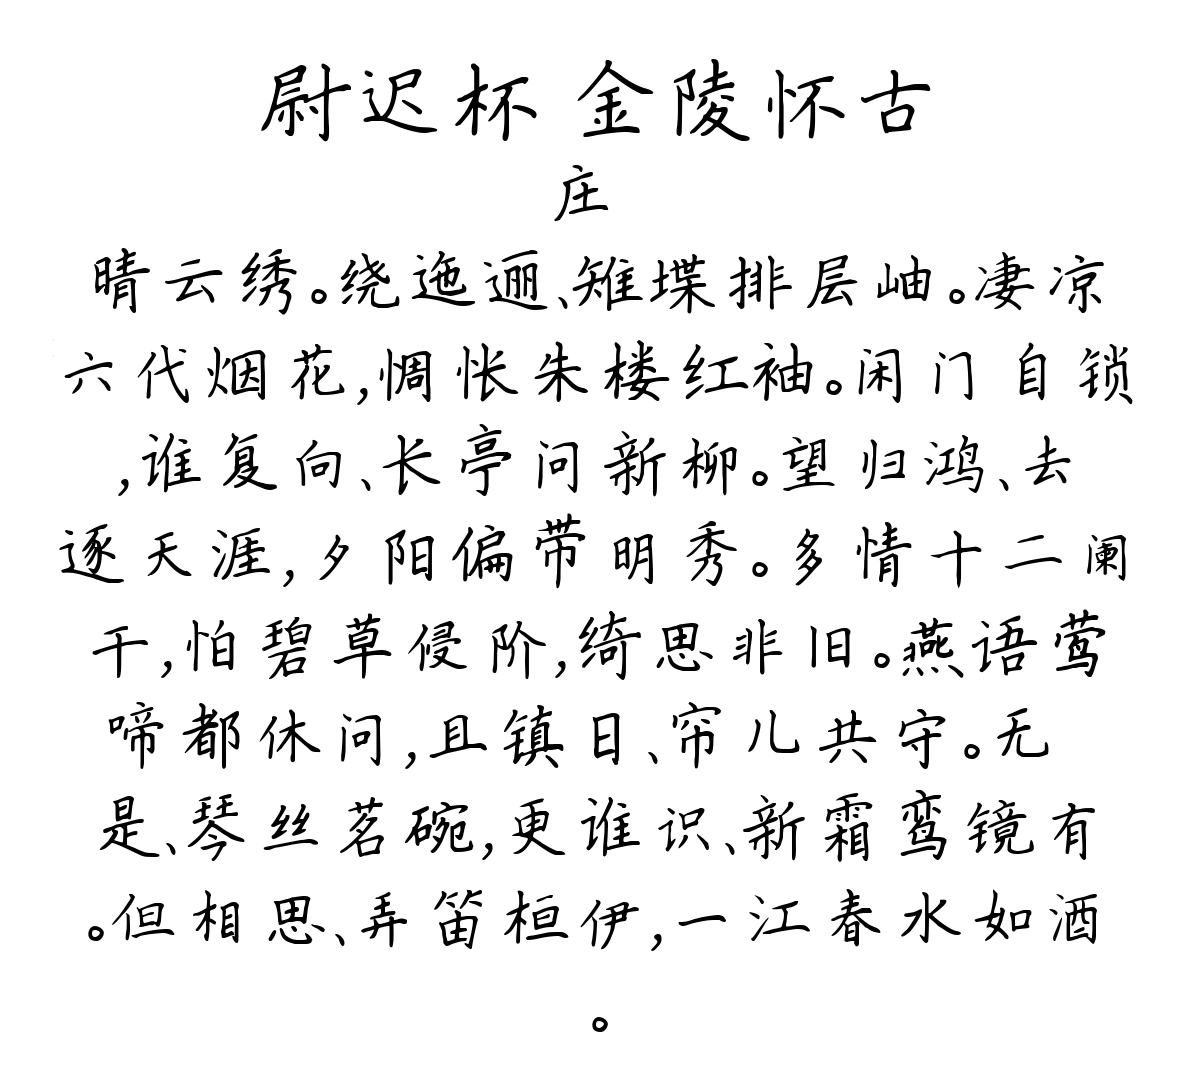 尉迟杯 金陵怀古
庄
晴云绣。绕迤逦、雉堞排层岫。凄凉
六代烟花,惆怅朱楼红袖。闲门自锁
,谁复向、长亭问新柳。望归鸿、去
逐天涯,夕阳偏带明秀。多情十二阑
干,怕碧草侵阶,绮思非旧。燕语莺
啼都休问,且镇日、帘儿共守。无
是、琴丝茗碗,更谁识、新霜鸾镜有
。但相思、弄笛桓伊,一江春水如酒
。